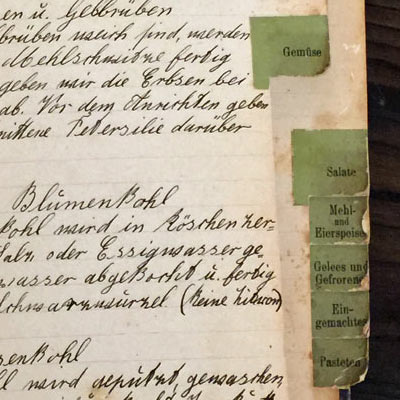 en u. Gelbrüben
brüben weich sind, werden
Mehlschwitze fertig
geben wir die Erbsen bei
ab. Vor dem Anrichten geben
nittene Petersilie darüber
Blumenkohl
kohl wird in Röschen zer-
Salz oder Essigwasser ge-
wasser abgekocht u. fertig
schwarzwurzel (keine Zitron)
senkohl
wird geputzt, gewaschen
Gemüse
Salate
Mehl-
und
Eierspeise
Gelees und
Gefroren
Ein-
gemachtes
Pasteten